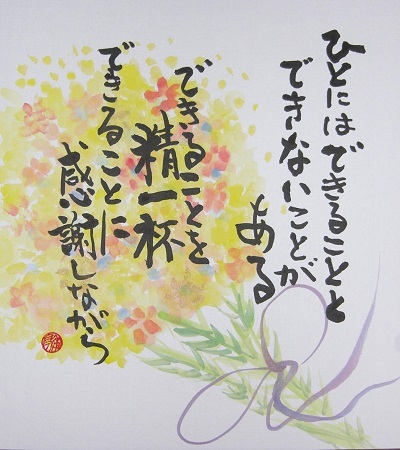 ひとにはできることと
できないことが
ある
できることを
精一杯
できることに
感謝しながら